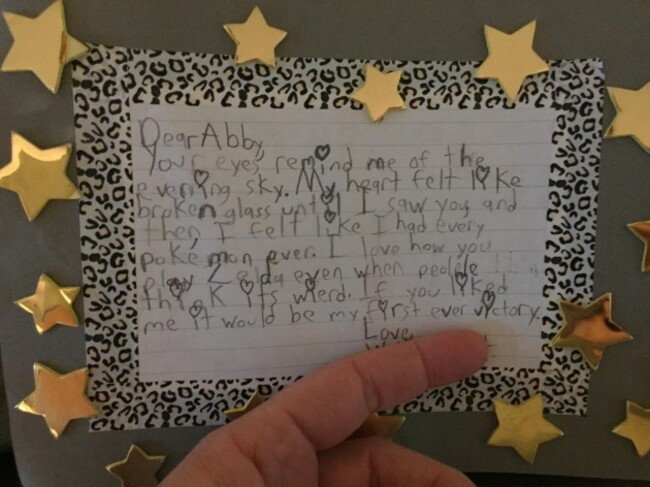 Dear Abby,
Your eyes remind me of the
evening sky. My heart felt like
broken glass until I saw you and
then I felt like I had every
poke mon ever. I love how you
play Zelda even when people
think its wierd. If you liked
me it would be my first ever victory.
Love